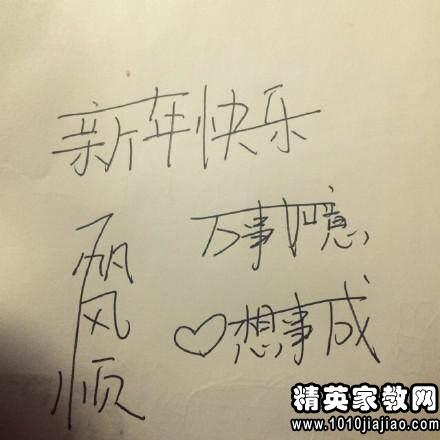 新年快乐
一帆风顺
万事如意
♡想事成
精英家教网
www.1010jiajiao.com